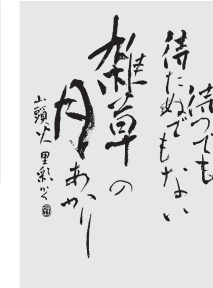 待つても
待たぬでもない
雑草の
月あかり
山頭火 里彩かく